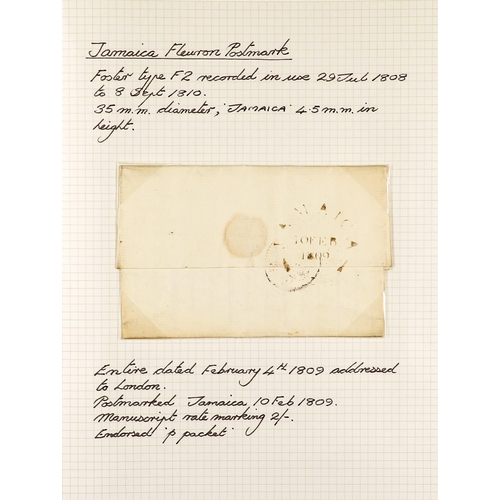 Jamaica Fleuron Postmark
Foster type F2 recorded in use 29 Jul 1808
to 8 Sept 1810.
35 m.m. diameter, 'JAMAICA' 4.5 m.m. in
height.
10 FEB
1809
Entire dated February 4th 1809 addressed
to London.
Postmarked Jamaica 10 Feb 1809.
Manuscript rate marking 2/-.
Endorsed 'p packet'